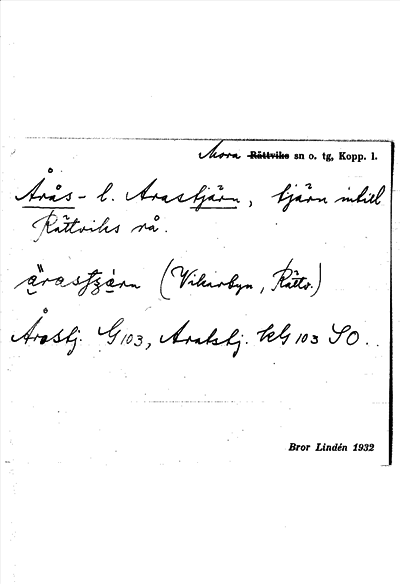 Mora ~~Rättviks~~ sn o. tg, Kopp. l.
Årås- l. Arastjärn, tjärn intill
Rättviks rå.
(Vikarbyn, Rättv.)
Årastj. G 103, Aratstj. kG 103 SO.
Bror Lindén 1932